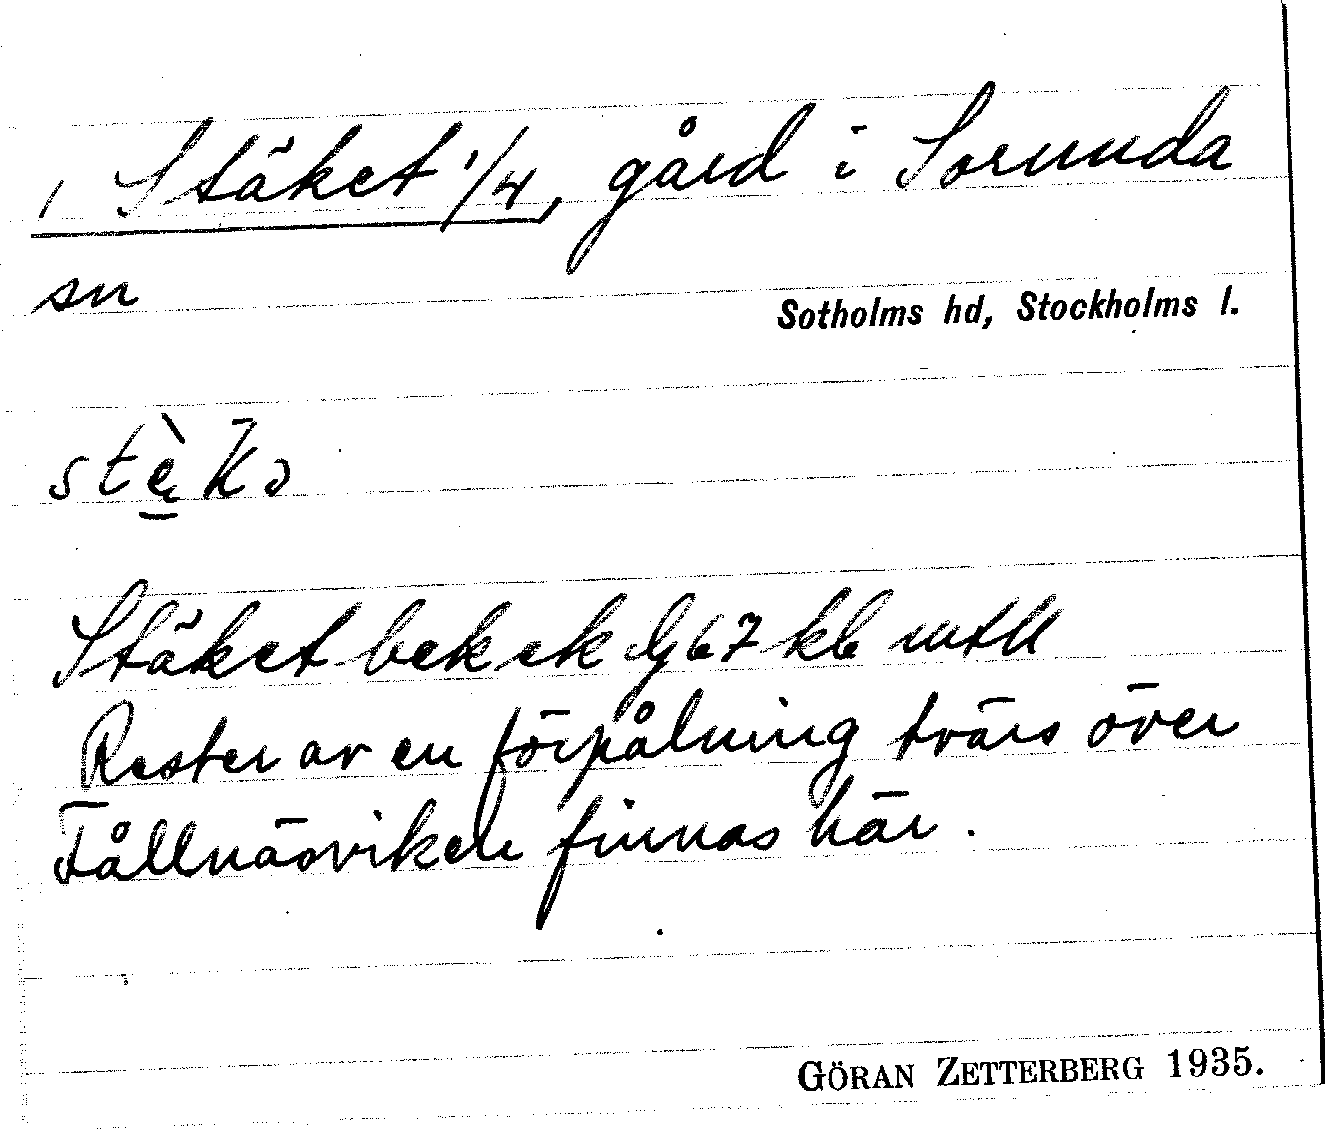 , Stäket 1/4, gård i Sorunda
sn
Sotholms hd, Stockholms l.
stèkə
Stäket bek ek bl 67 kb mtll
Rester av en förpålning tvärs över
Fållnäsviken finnas här.
GÖRAN ZETTERBERG 1935.